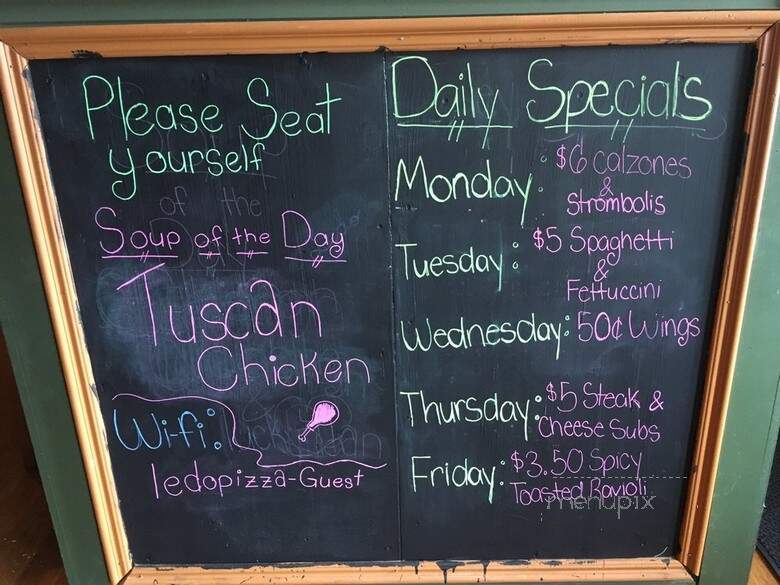 Please Seat
yourself
of the
Soup of the Day
Tuscan
Chicken
Wi-fi:
ledopizza-Guest
Daily Specials
Monday: $6 Calzones
&
Strombolis
Tuesday: $5 Spaghetti
&
Fettuccini
Wednesday: 50¢ Wings
Thursday: $5 Steak &
Cheese Subs
Friday: $3.50 Spicy
Toasted Ravioli
menupix